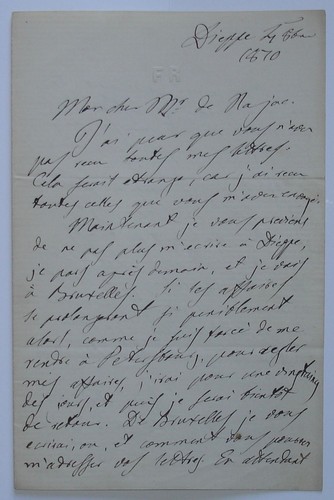 Dieppe 4 8bre
1870
Mon cher Mr de Najac.
J'ai peur que vous n'ayez
pas reçu toutes mes lettres.
Cela serait étrange, car j'ai reçu
toutes celles que vous m'avez
Maintenant je vous préviens
de ne pas plus m'écrire à Dieppe,
je pars après demain, et je vais
à Bruxelles. Si les affaires
se prolongeront si péniblement
alors, comme je suis forcé de me
rendre à Petersbourg, pour régler
mes affaires, j'irai pour une vingtaine
des jours, et puis je serai bientôt
de retour. De Bruxelles je vous
écrirai, où, et comment vous pouvez
m'adresser vos lettres. En attendant